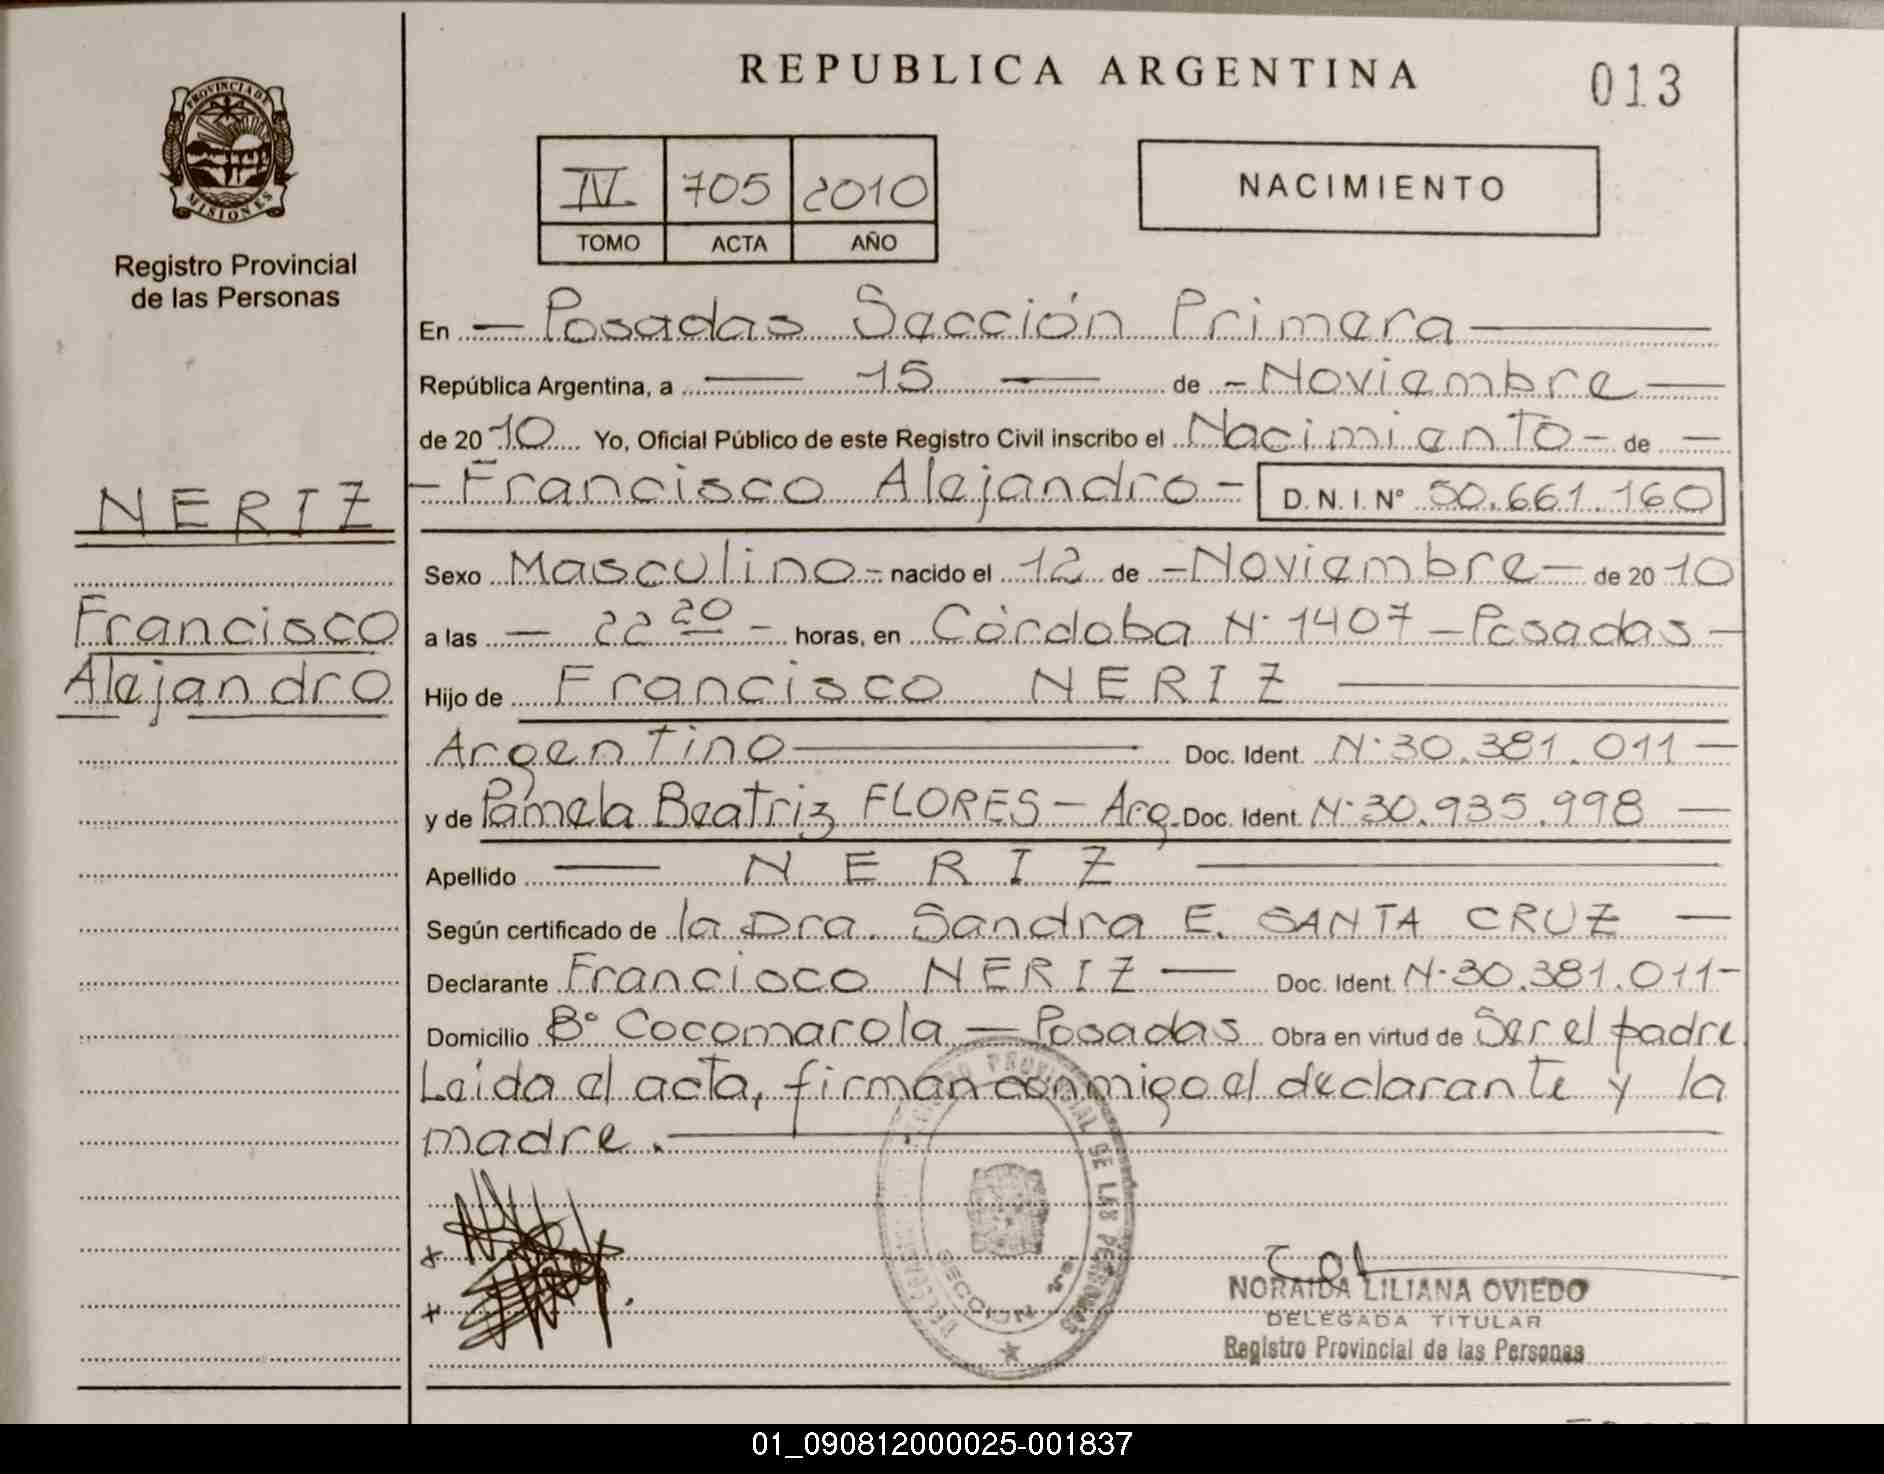 REPUBLICA ARGENTINA
013
PROVINCIA DE
MISIONES
Registro Provincial
de las Personas
IV 705 2010
TOMO ACTA AÑO
NACIMIENTO
En — Posadas Sección Primera —
República Argentina, a — 15 — de — Noviembre —
de 2010 Yo, Oficial Público de este Registro Civil inscribo el Nacimiento — de —
— Francisco Alejandro — D.N.I. Nº 50.661.160
NERIZ
Francisco
Alejandro
Sexo Masculino — nacido el 12 de — Noviembre — de 2010
a las — 22 20 — horas, en Córdoba Nº 1407 — Posadas —
Hijo de Francisco NERIZ —
Argentino — Doc. Ident. Nº 30.381.011 —
y de Pamela Beatriz FLORES — Arg. Doc. Ident. Nº 30.935.998 —
Apellido — NERIZ —
Según certificado de la Dra. Sandra E. SANTA CRUZ —
Declarante Francisco NERIZ — Doc. Ident. Nº 30.381.011 —
Domicilio Bº Cocomarola — Posadas Obra en virtud de Ser el padre.
Leída el acta, firman conmigo el declarante y la
madre. —
PROVINCIAL DE LAS PERSONAS
SECCION
NORAIDA LILIANA OVIEDO
DELEGADA TITULAR
Registro Provincial de las Personas
01_090812000025-001837